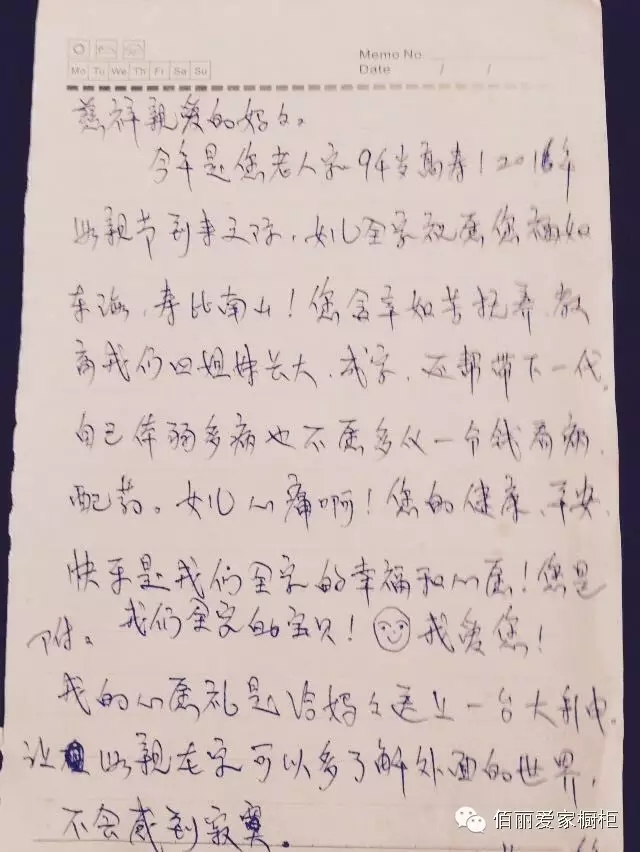 Memo No.
Mo Tu We Th Fr Sa Su
Date / /
慈祥亲爱的妈々。
今年是您老人家94岁高寿！2016年
母亲节到来之际，女儿全家祝愿您福如
东海，寿比南山！您含辛如苦抚养、教
育我们四姐妹长大、成家，还帮带下一代，
自己体弱多病也不愿多化一个钱看病、
配药。女儿心痛啊！您的健康、平安、
快乐是我们全家的幸福和心愿！您是
我们全家的宝贝！我爱您！
附。
我的心愿礼是给妈々送上一台大彩电，
让母亲在家可以多了解外面的世界，
不会感到寂寞。
佰丽爱家橱柜